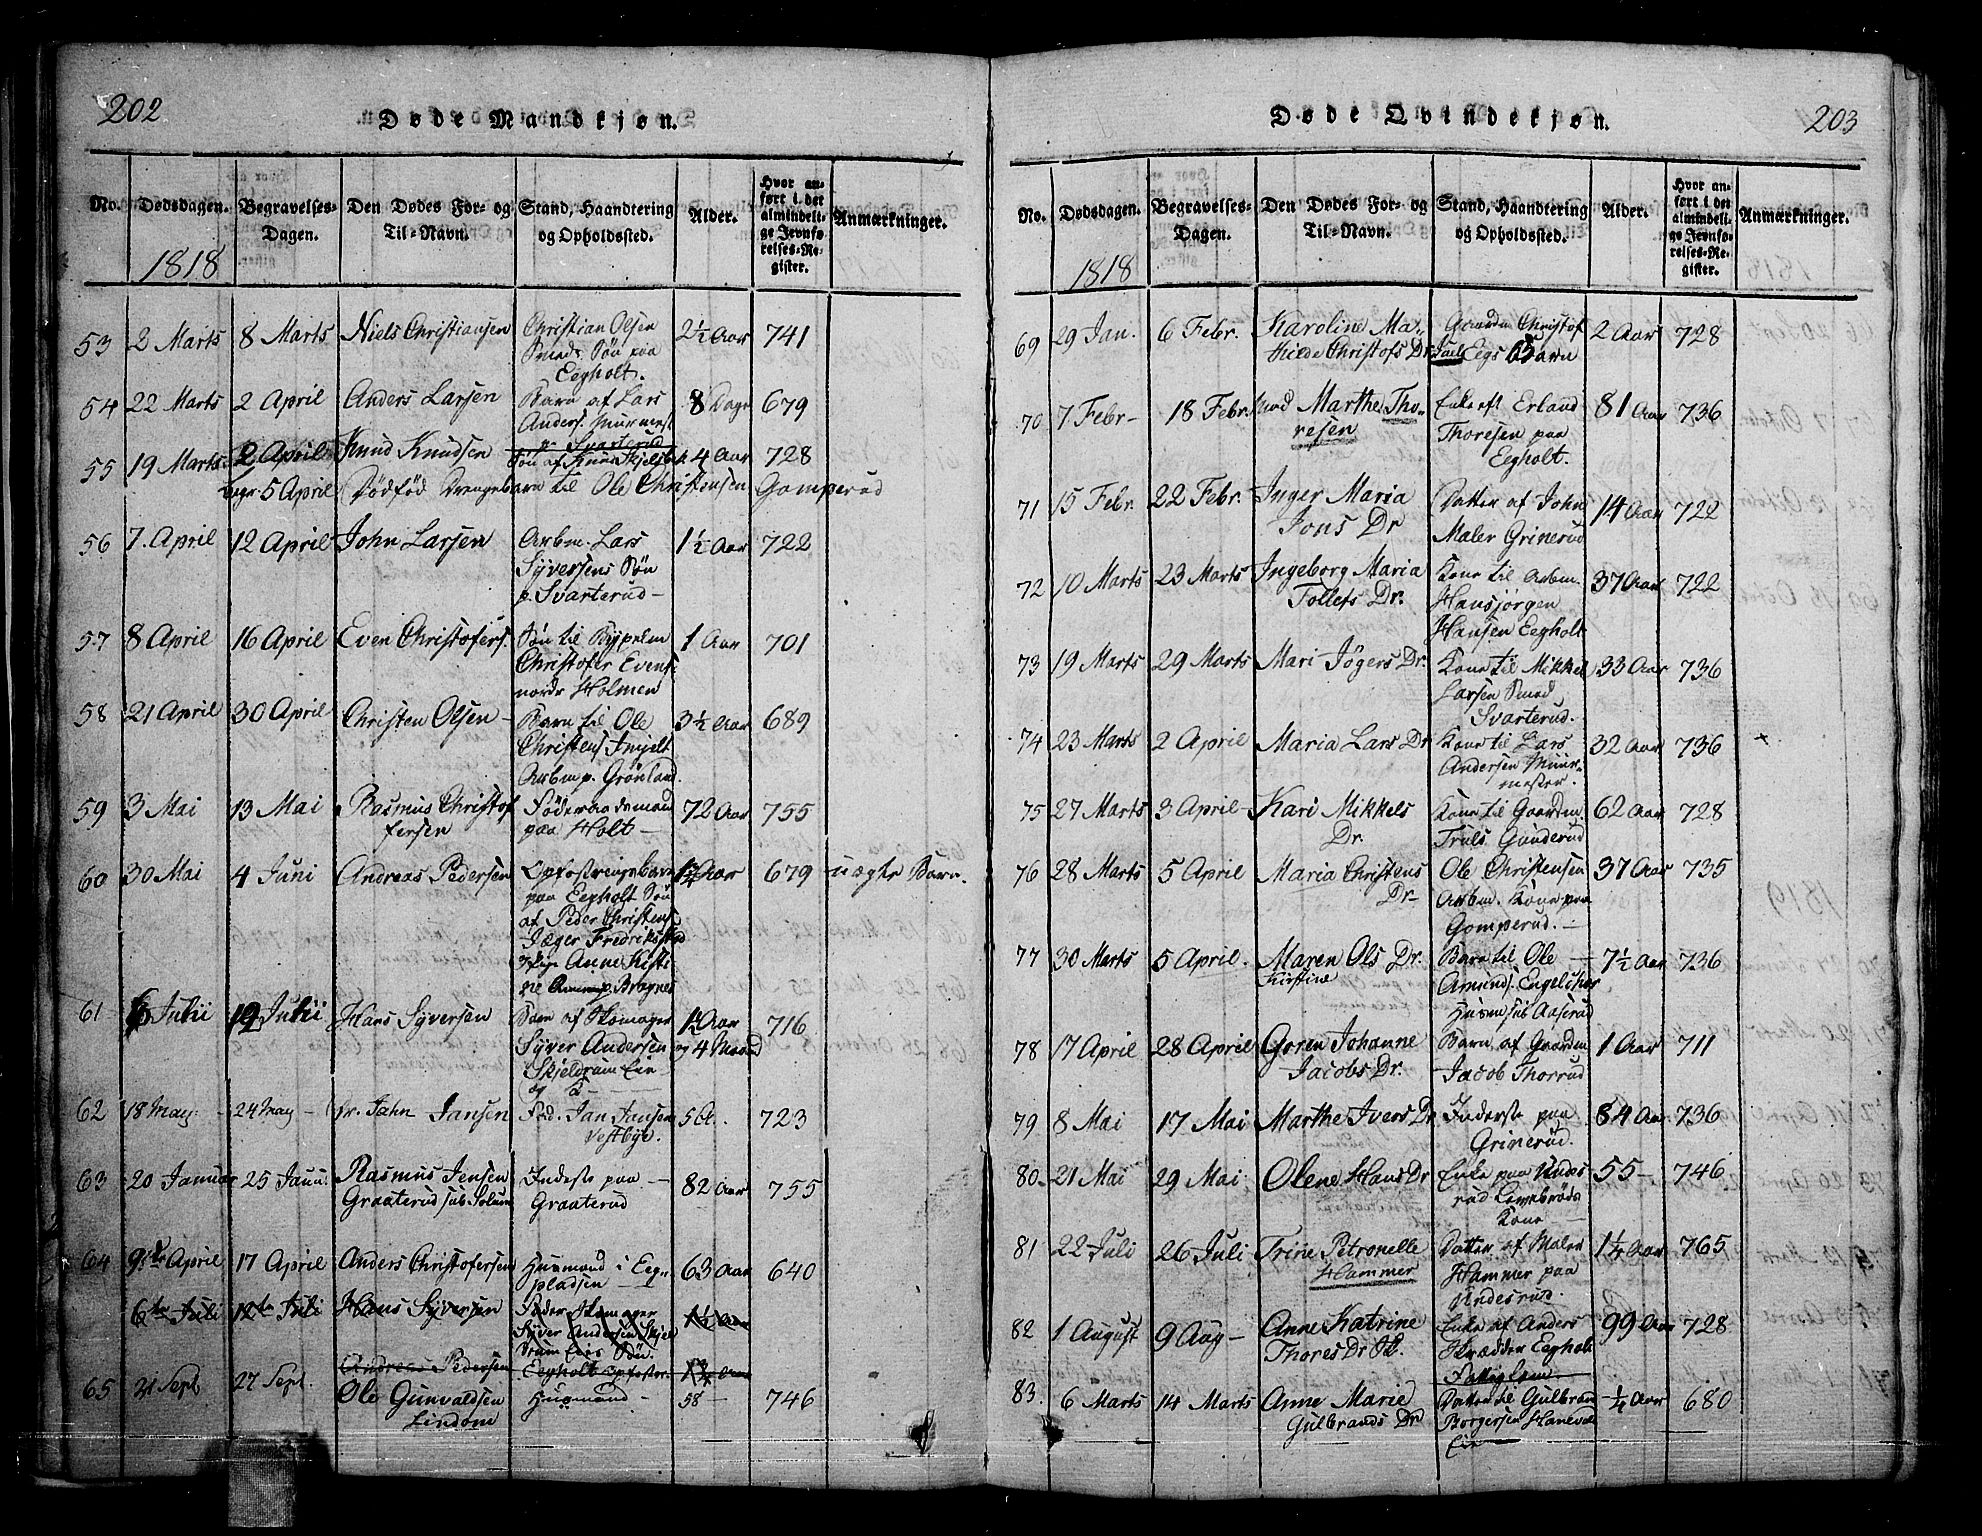 202
Døde Mandkjøn.
No.
Dødsdagen.
Begravelses-Dagen.
Den Dødes For- og Til-Navn.
Stand, Haandtering og Opholdssted.
Alder.
Hvor anført i det almindelige Jevnførelses-Register.
Anmærkninger.
1818
53 2 Marts 8 Marts Niels Christiansen Christian Olsen 2½ Aar 741
Smeds Søn paa
Eegholt.
54 22 Marts 2 April Anders Larsen Barn af Lars 8 Dage 679
Anders. Muurmest
p. Svarterud
55 19 Marts 2 April Knud Knudsen Søn af Knud 4 Aar 728
5 April Dødfød Drengebarn til Ole Christensen Gomperud
56 7. April 12 April John Larsen Arbm. Lars 1½ Aar 722
Syversens Søn
p. Svarterud
57 8 April 16 April Even Christofers. Søn til 1 Aar 701
Christofer Evens.
nordr Holmen
58 21 April 30 April Christen Olsen Barn til Ole 3½ Aar 689
Christens.
Arbm p. Grønland
59 3 Mai 13 Mai Rasmus Christof Føderaadsmand 72 Aar 755
fersen paa Holt
60 30 Mai 4 Juni Andreas Pedersen Opfostringsbarn Aar 679 uægte Barn.
paa Eegholt Søn
af Peder Christens.
Jæger Fredrikstad
Pige Anne Kisti
ne p. Bragnes
61 6 Julii 12 Julii Hans Syversen Barn af Skomager 1 Aar 716
Syver Andersen og 4 Maaned
Skjeldrum Eie
62 18 May 24 May Jahn Jansen Fad. Jan Jansen 723
Vestbye.
63 20 Januar 25 Janu. Rasmus Jensen Inderste paa 82 Aar 755
Graaterud sub. Solum Graaterud
64 9de April 17 April Anders Christofersen Husmand i Eeg 63 Aar 640
pladsen
6te Juli 12te Juli Hans Syversen Fader Skomager 1½ Aar
Syver Andersen Skjel
drum Eies Søn.
Andreas Pedersen Eegholt Opfostr. Aar
65 21 Sept 27 Sept. Ole Gunvaldsen Husmand 58 746
Lindom
Døde Qvindekjøn.
203
No.
Dødsdagen.
Begravelses-Dagen.
Den Dødes For- og Til-Navn.
Stand, Haandtering og Opholdssted.
Alder.
Hvor anført i det almindelige Jevnførelses-Register.
Anmærkninger.
1818
69 29 Jan. 6 Febr. Karoline Ma- Gaardm Christof 2 Aar 728
thilde Christofs Dr. Eegs Barn
70 7 Febr 18 Febr. Mad Marthe Tho- Enke eft Erland 81 Aar 736
resen Thoresen paa
Eegholt.
71 15 Febr. 22 Febr. Inger Maria Datter af John 14 Aar 722
Jons Dr Maler Grinerud
72 10 Marts 23 Marts Ingeborg Maria Kone til Arbm. 37 Aar 722
Tollefs Dr. Hansjørgen
Hansen Eegholt
73 19 Marts 29 Marts Mari Jøgers Dr. Kone til Mikkel 33 Aar 736
Larsen Smed
Svarterud.
74 23 Marts 2 April Maria Lars Dr Kone til Lars 32 Aar 736 +
Andersen Muur-
mester.
75 27 Marts 3 April Kari Mikkels Kone til Gaardm. 62 Aar 728
Dr. Truls Ganderud
76 28 Marts 5 April Maria Christens Ole Christensen 37 Aar 735
Dr Arbm. Kone paa
Gomperud.
77 30 Marts 5 April. Maren Ols Dr. Barn til Ole 7½ Aar 736
Kirstine Amunds. Engelskor
Husm sub Aaserud
78 17 April 28 April Goren Johanne Barn af Gaardm 1 Aar 711
Jacobs Dr. Jacob Thorrud
79 8 Mai 17 Mai Marthe Ivers Dr Inderste paa 84 Aar 736
Grinerud.
80. 21 Mai 29 Mai Olene Hans Dr Enke paa Undes 55 746
rud
Kone
81 22 Juli 26 Juli Trine Petronelle Datter af Maler 1¼ Aar 765
Hammer Hammer paa
Undesrud.
82 1 August 9 Aug Anne Katrine Enke af Anders 99 Aar 728
Thores Dr Skrædder Eegholt
Fattiglem
83. 6 Marts 14 Marts Anne Marie Datter til Gulbran ¼ Aar 680
Gulbrands Dr Borgersen Haneval
Eie